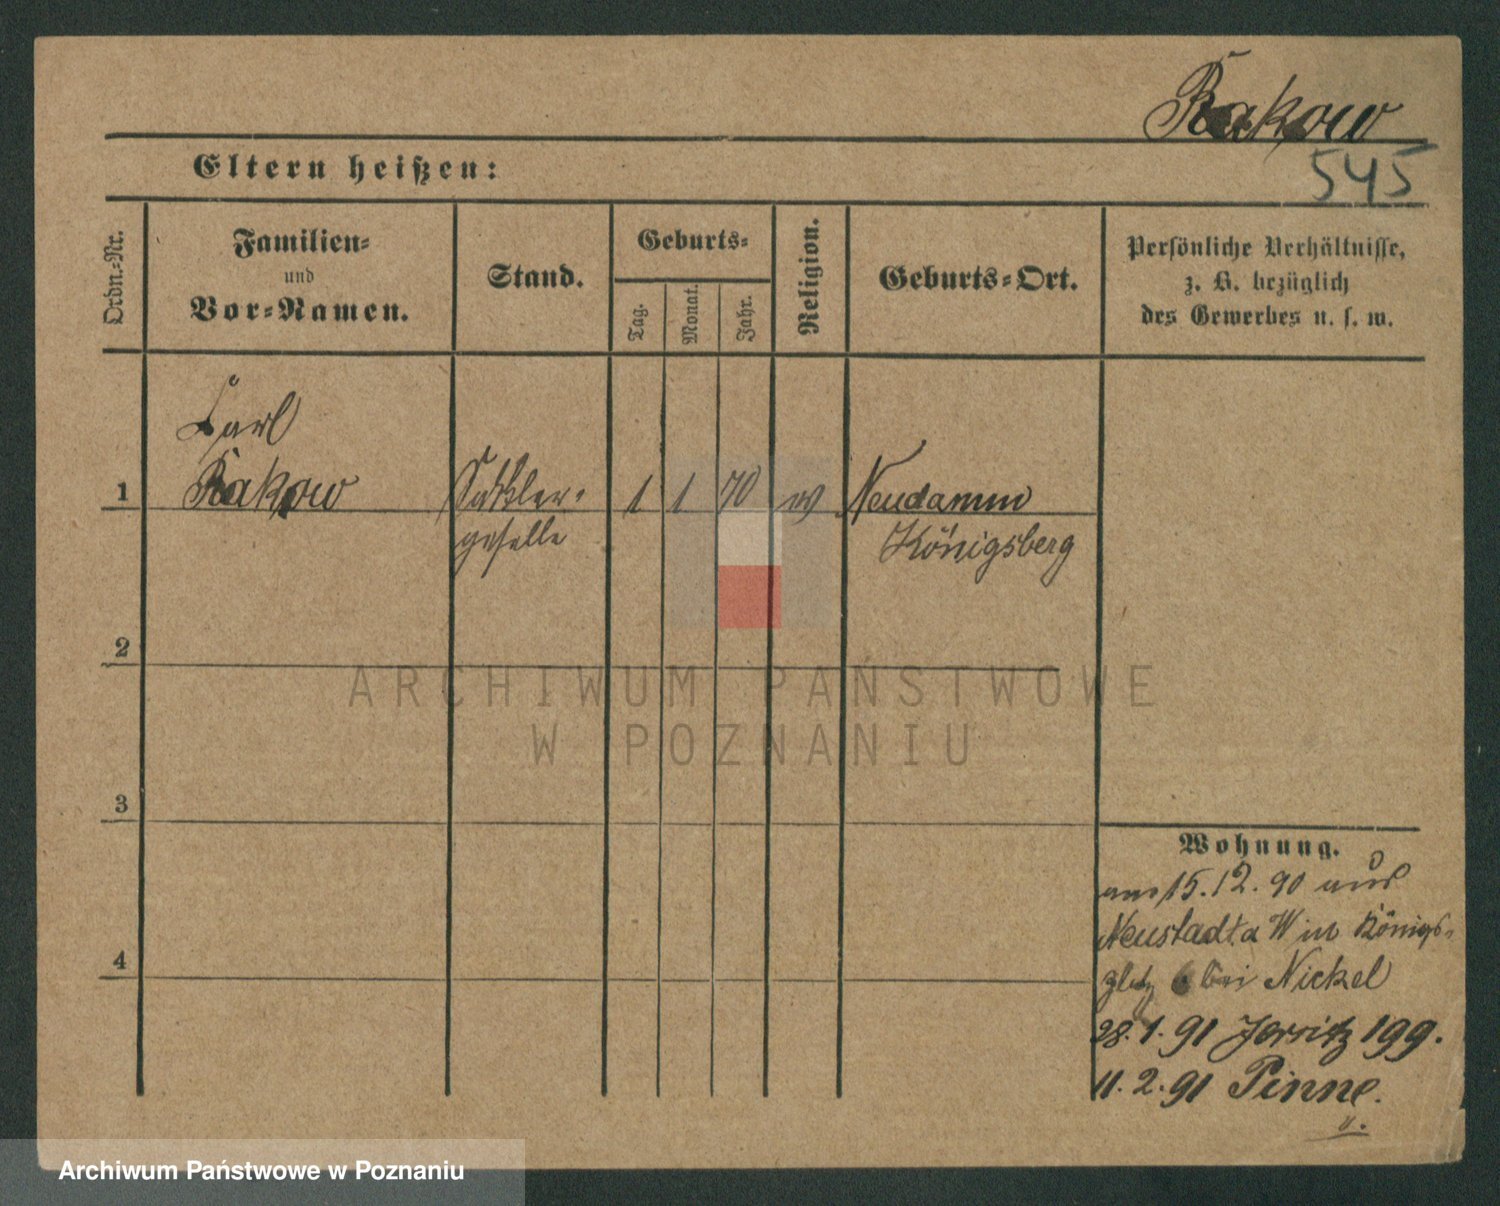 Rakow
545
Eltern heißen:
Ordn.-Nr.
Familien-
und
Vor-Namen.
Stand.
Geburts-
Tag.
Monat.
Jahr.
Religion.
Geburts-Ort.
Persönliche Verhältnisse,
z. B. bezüglich
des Gewerbes u. s. w.
Carl
1 Rakow Sattler- 1 1 70 w Neudamm
geselle Königsberg
2
3
4
ARCHIWUM PAŃSTWOWE
W POZNANIU
Wohnung.
am 15.12.90 aus
Neustadt a W in Königs-
platz 6 bei Nickel
28.1.91 Jersitz 199.
11.2.91 Pinne.
Archiwum Państwowe w Poznaniu